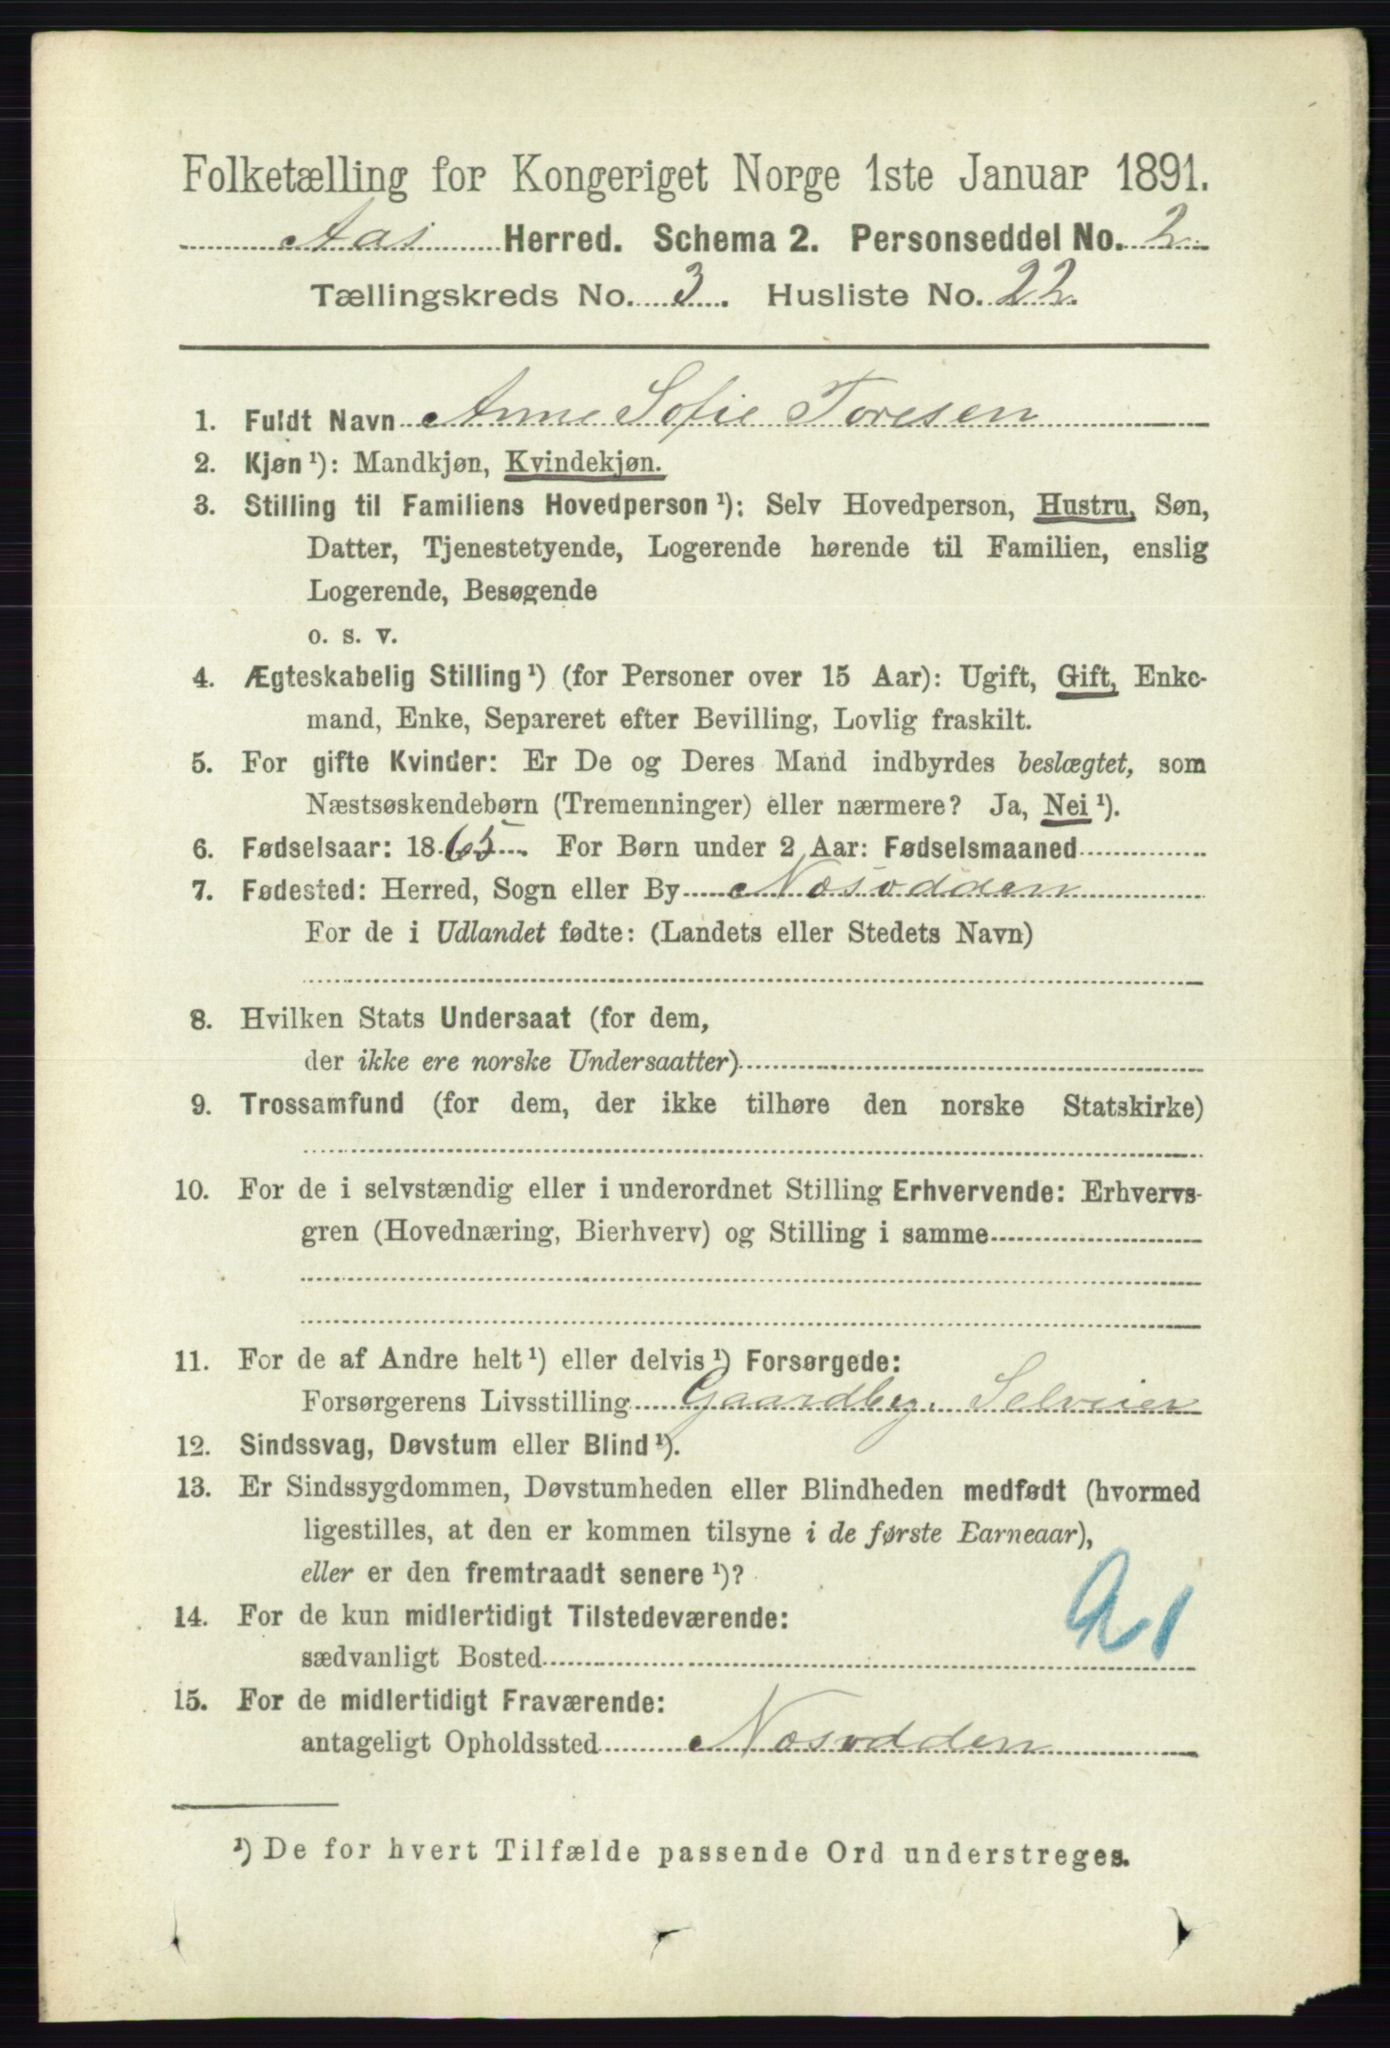 Folketælling for Kongeriget Norge 1ste Januar 1891.
Aas Herred. Schema 2. Personseddel No. 2
Tællingskreds No. 3. Husliste No. 22
1. Fuldt Navn Anne Sofie Toresen
2. Kjøn ¹): Mandkjøn, Kvindekjøn.
3. Stilling til Familiens Hovedperson ¹): Selv Hovedperson, Hustru, Søn,
Datter, Tjenestetyende, Logerende hørende til Familien, enslig
Logerende, Besøgende
o. s. v.
4. Ægteskabelig Stilling ¹) (for Personer over 15 Aar): Ugift, Gift, Enke-
mand, Enke, Separeret efter Bevilling, Lovlig fraskilt.
5. For gifte Kvinder: Er De og Deres Mand indbyrdes beslægtet, som
Næstsøskendebørn (Tremenninger) eller nærmere? Ja, Nei ¹).
6. Fødselsaar: 1865. For Børn under 2 Aar: Fødselsmaaned
7. Fødested: Herred, Sogn eller By Næsodden
For de i Udlandet fødte: (Landets eller Stedets Navn)
8. Hvilken Stats Undersaat (for dem,
der ikke ere norske Undersaatter)
9. Trossamfund (for dem, der ikke tilhøre den norske Statskirke)
10. For de i selvstændig eller i underordnet Stilling Erhvervende: Erhvervs-
gren (Hovednæring, Bierhverv) og Stilling i samme
11. For de af Andre helt ¹) eller delvis ¹) Forsørgede:
Forsørgerens Livsstilling Gaardbr. Selveier
12. Sindssvag, Døvstum eller Blind ¹).
13. Er Sindssygdommen, Døvstumheden eller Blindheden medfødt (hvormed
ligestilles, at den er kommen tilsyne i de første Barneaar),
eller er den fremtraadt senere ¹)?
14. For de kun midlertidigt Tilstedeværende:
sædvanligt Bosted
15. For de midlertidigt Fraværende:
antageligt Opholdssted Næsodden
¹) De for hvert Tilfælde passende Ord understreges.